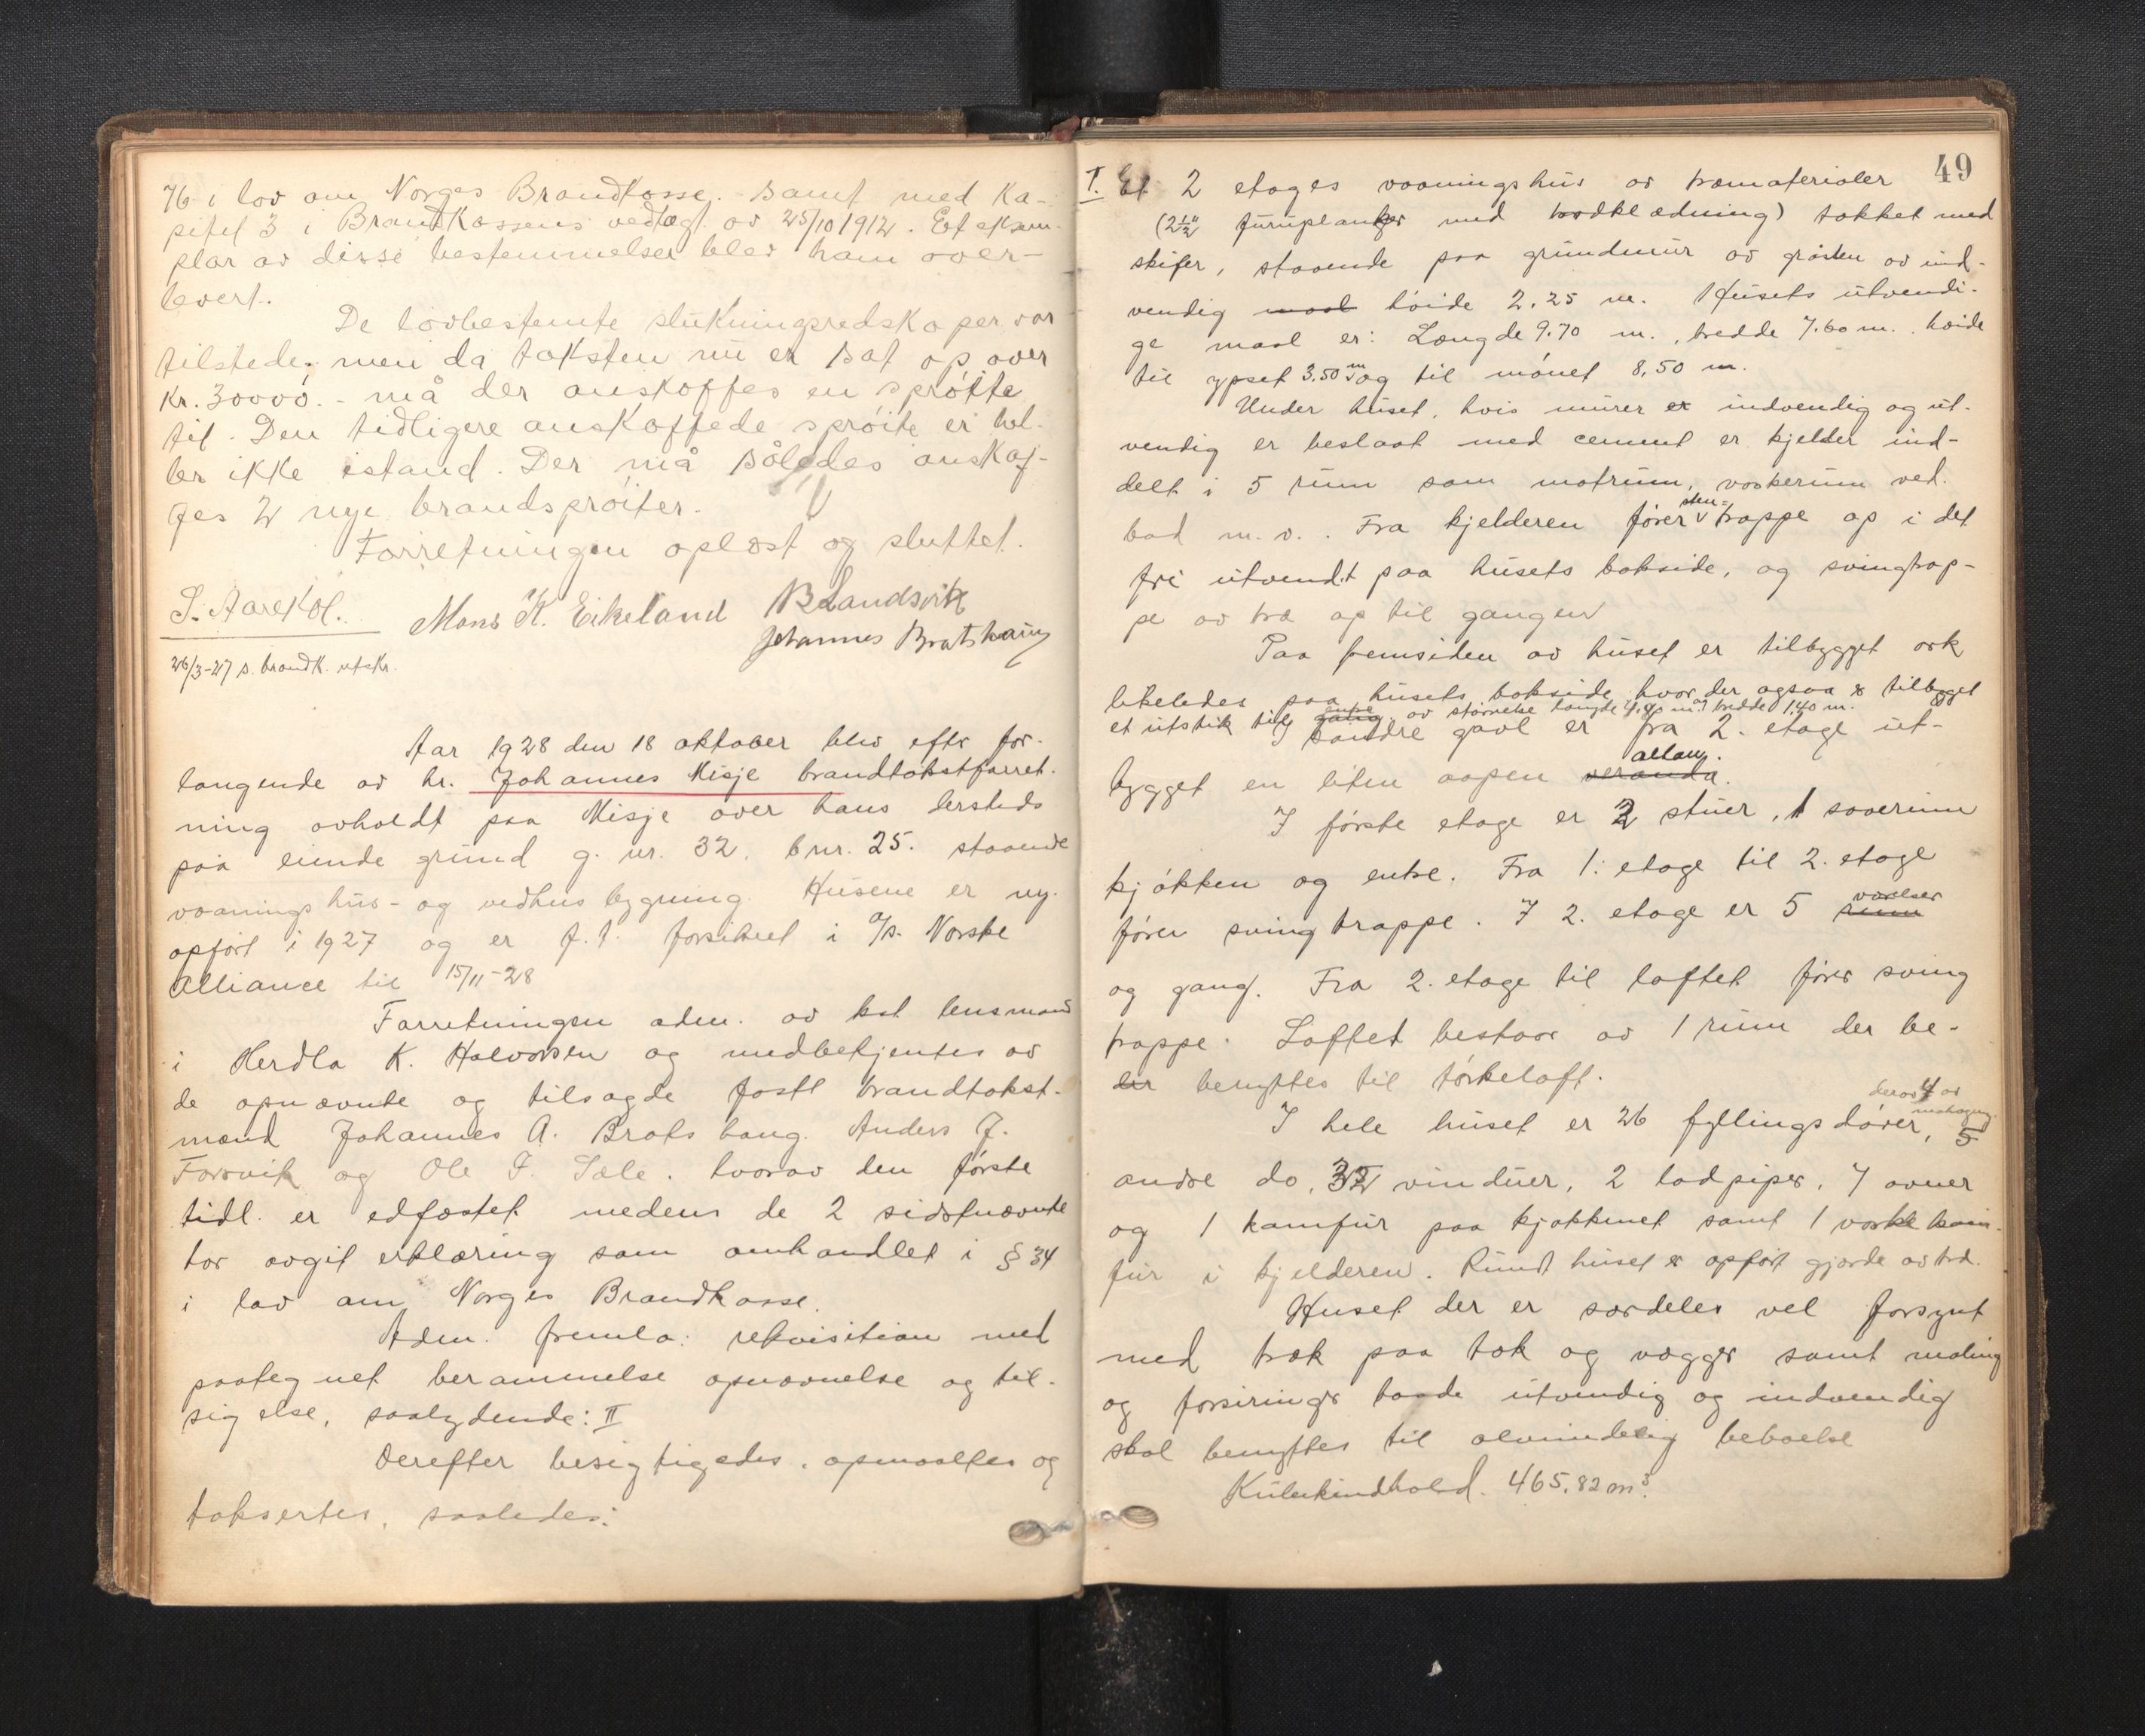 76 i lov om Norges Brandkasse. Samt med Ka-
pitel 3 i Brandkassens vedtægt. av 25/10 1912. Et eksem-
plar av disse bestemmelser blev ham over-
levert.
De lovbestemte slukningsredskaper var
tilstede. men da taksten nu er sat op over
Kr. 30000.- må der anskaffes en sprøite
til. Den tidligere anskaffede sprøite er hel-
ler ikke istand. Der må således anskaf-
fes 2 nye brandsprøiter.
Forretningen oplæst og sluttet.
S. Aarekol. Mons K. Eikeland B Landsvik
Johannes Bratshaug
26/3-27 s. brandk. utskr.
Aar 1928 den 18 oktober blev efter for-
langende av hr. Johannes Misje brandtakstforret-
ning avholdt paa Misje over hans dersteds
paa eiende grund g. nr. 32. bnr. 25. staaende
vaaningshus- og vedhusbygning. Husene er ny-
opført i 1927 og er f.t. forsikret i A/s. Norske
Alliance til 15/11-28
Forretningen adm. av kst lensmand
i Herdla K. Halvorsen og medbetjentes av
de opnævnte og tilsagde faste brandtakst-
mænd Johannes A. Bratshaug. Anders J.
Forsvik og Ole J. Sæle. hvorav den første
tidl. er edfæstet medens de 2 sidstnævnte
har avgit erklæring som omhandlet i § 34
i lov om Norges Brandkasse.
Adm. fremla: rekvisition med
paategnet berammelse opnævnelse og til-
sigelse, saalydende: II
Derefter besigtigedes. opmaaltes og
taksertes, saaledes:
49
I. Et 2 etages vaaningshus av træmaterialer
(2½" furuplanker med bordklædning) tækket med
skifer, staaende paa grundmur av graasten av ind-
vendig maal høide 2.25 m. Husets utvendi-
ge maal er: Længde 9.70 m., bredde 7.60 m. høide
til gesims 3.50 m og til mønet 8.50 m.
Under huset, hvis murer er indvendig og ut-
vendig er beslaat med cement er kjelder ind-
delt i 5 rum som matrum, vaskerum ved.
bad m. v.. Fra kjelderen fører sten-trappe op i det
fri utvendt paa husets bakside, og svingtrap-
pe av træ op til gangen
Paa fremsiden av huset er tilbygget ark
likeledes paa husets bakside hvor der ogsaa er tilbyget
et utstik til gang entre av størrelse længde 4,40 m. og bredde 1,40 m.
I søndre gavl er fra 2. etage ut-
bygget en liten aapen veranda altan.
I første etage er 2 stuer, 1 soverum
kjøkken og entre. Fra 1. etage til 2. etage
fører svingtrappe. I 2. etage er 5 rum værelser
og gang. Fra 2. etage til loftet fører sving
trappe. Loftet bestaar av 1 rum der be-
der benyttes til tørkeloft.
I hele huset er 26 fyllingsdører, derav 4 av mahogny. 5
andre do, 32 vinduer, 2 lodpiper, 7 ovner
og 1 kamfur paa kjøkkenet samt 1 vaskekam-
fur i kjelderen. Rundt huset er opført gjærde av træ.
Huset der er særdeles vel forsynt
med træk paa tak og vægger samt maling
og forsiringer baade utvendig og indvendig
skal benyttes til alminnelig beboelse
Kubikindhold. 465,82 m³.